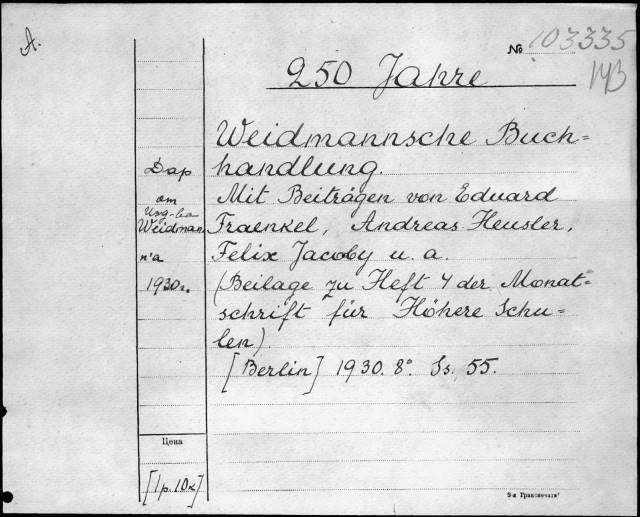 A.
№ 103335
250 Jahre
Weidmannsche Buch=
handlung.
Mit Beiträgen von Eduard
Fraenkel, Andreas Heusler,
Felix Jacoby u. a.
(Beilage zu Heft 4 der Monat=
schrift für Höhere Schu=
len).
[Berlin] 1930. 8° Ss. 55.
Дар
от
Изд-ва
Weidmann
n'a
1930 г.
Цена
[1 р. 10 к]